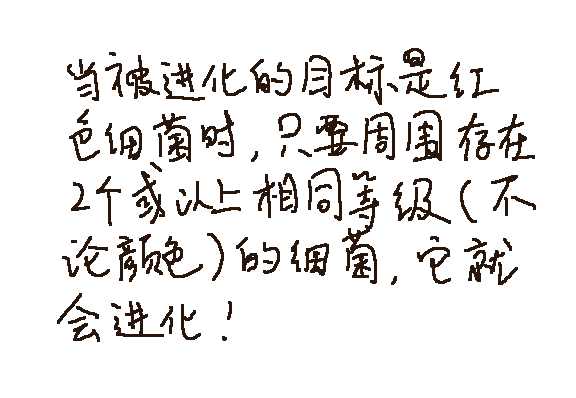 当被进化的目标是红
色细菌时,只要周围存在
2个或以上相同等级(不
论颜色)的细菌,它就
会进化!